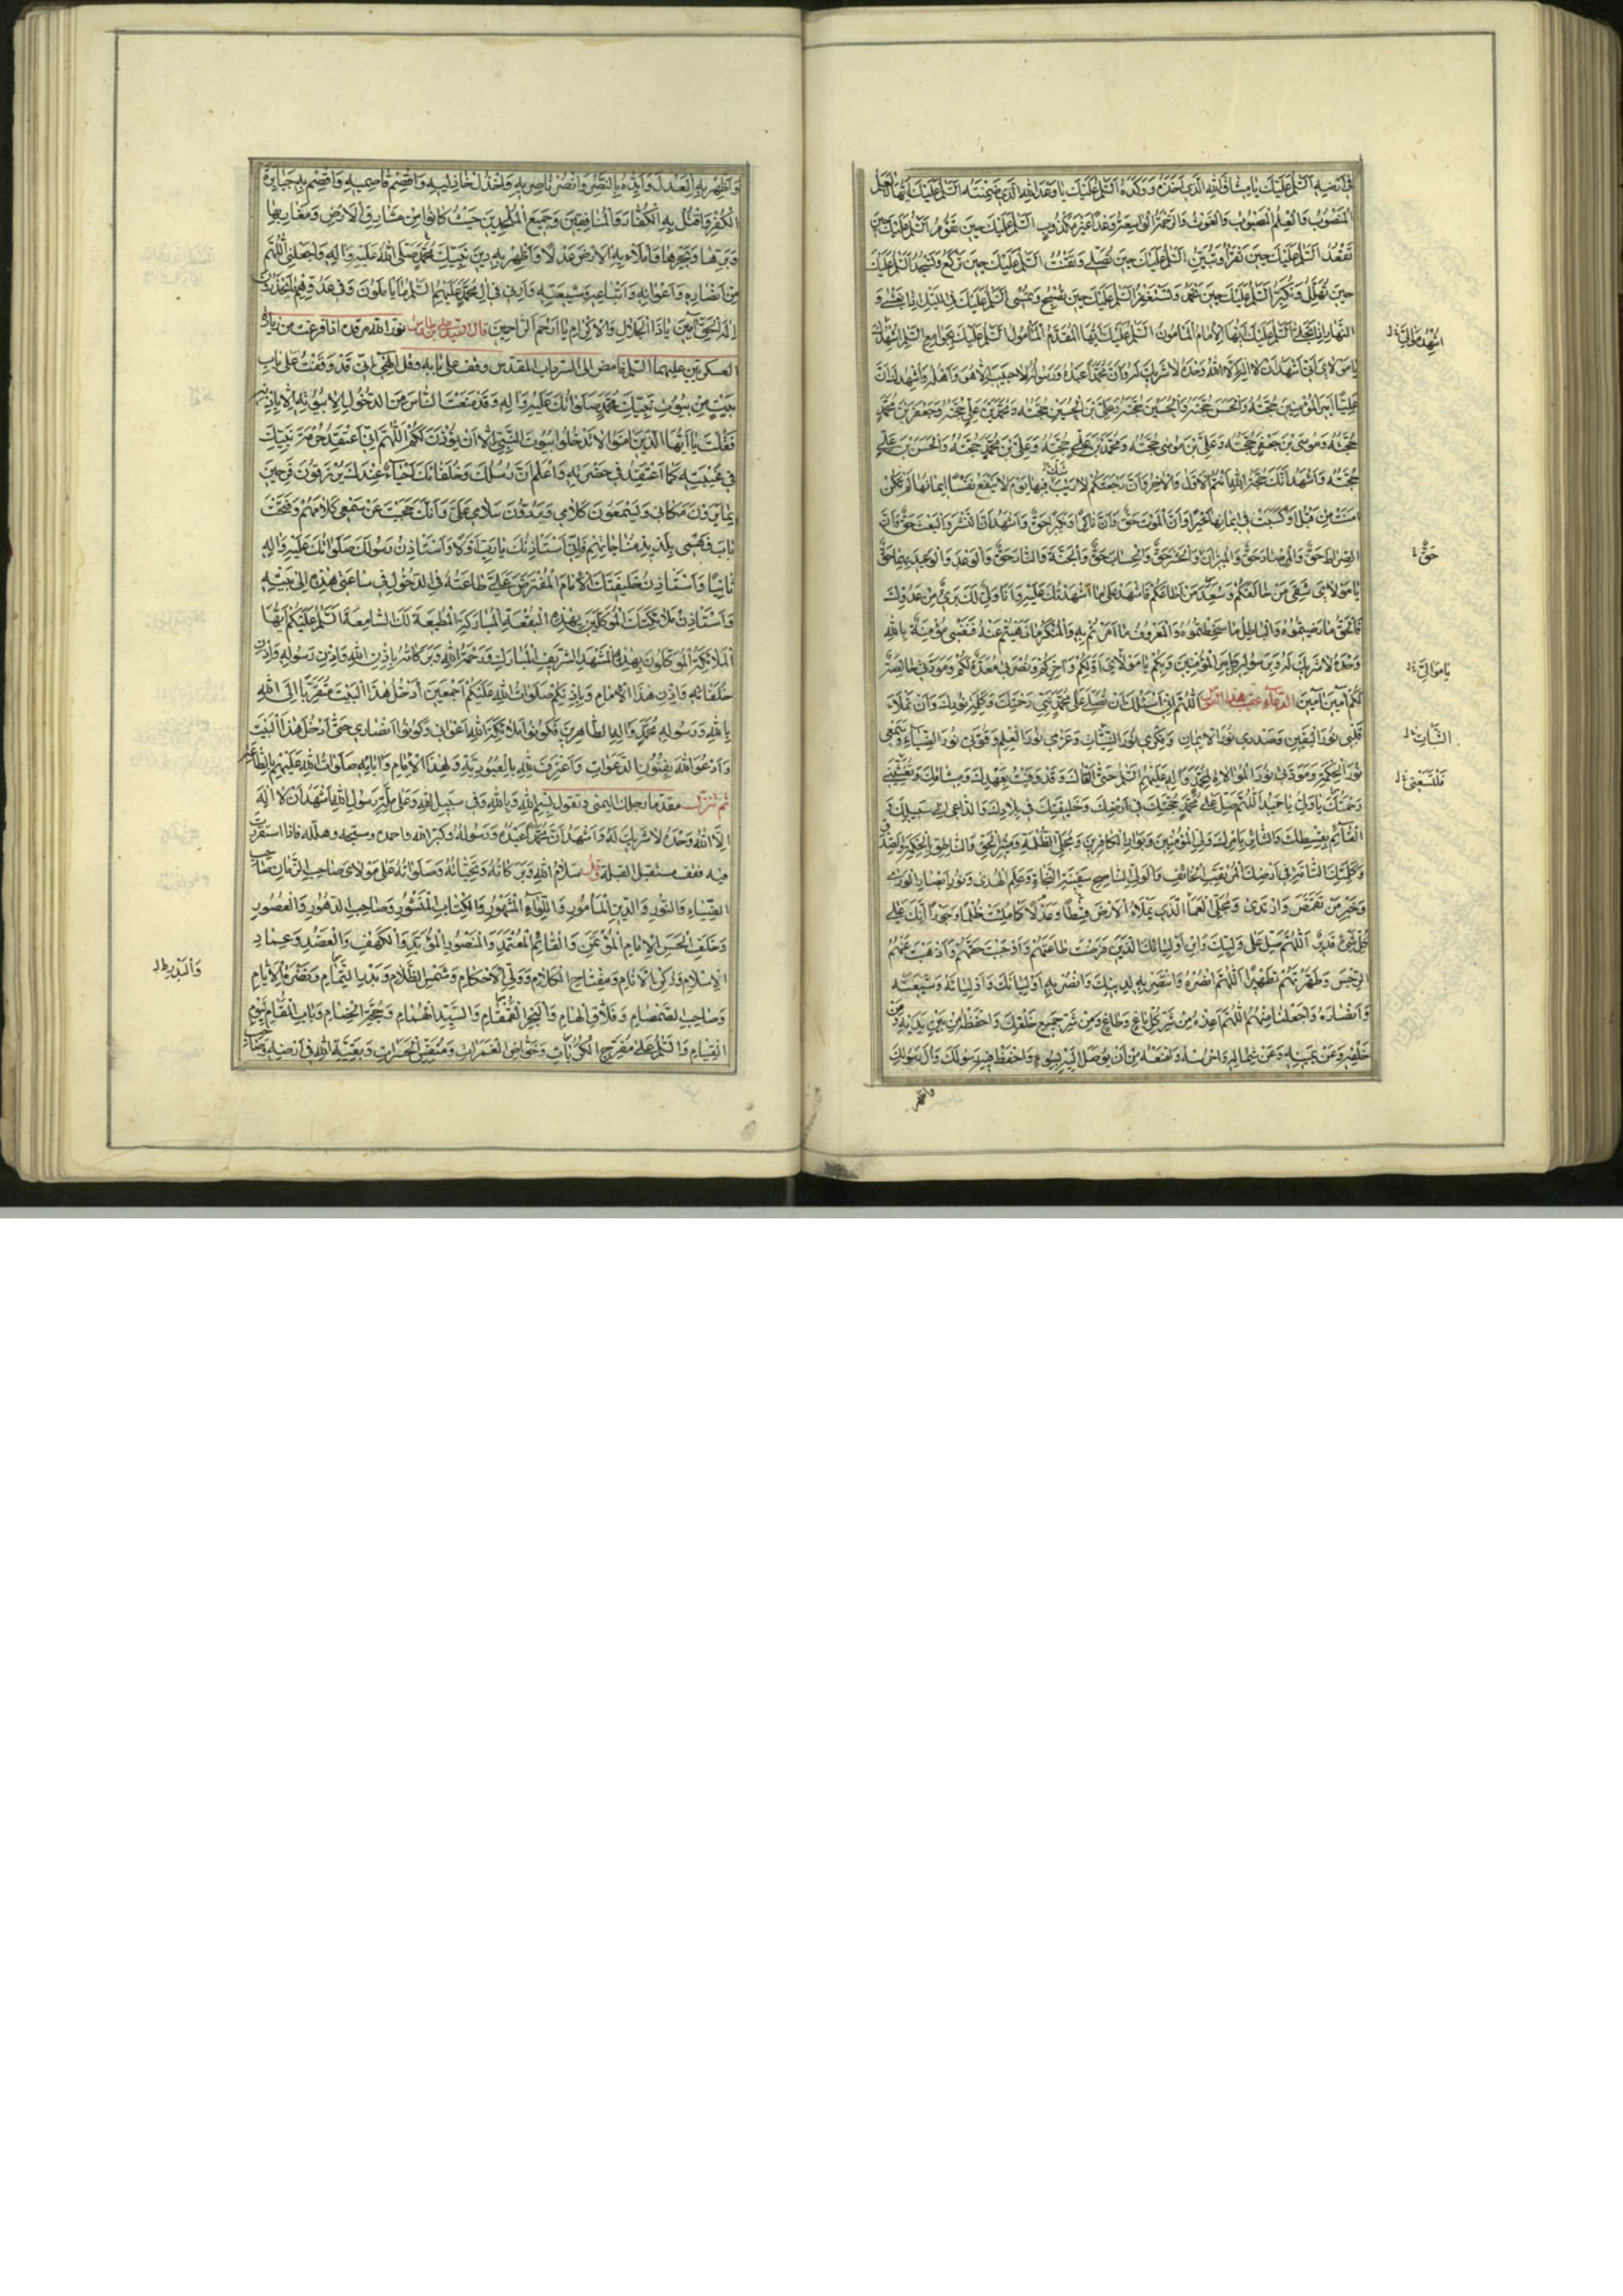 في أرضه السلام عليك يا ميثاق الله الذي أخذه ووكده السلام عليك يا وعد الله الذي ضمنه السلام عليك أيها العلم
المنصوب والعلم المصبوب والغوث والرحمة الواسعة وعدا غير مكذوب السلام عليك حين تقوم السلام عليك حين
تقعد السلام عليك حين تقرأ وتبين السلام عليك حين تصلي وتقنت السلام عليك حين تركع وتسجد السلام عليك
حين تهلل وتكبر السلام عليك حين تحمد وتستغفر السلام عليك حين تصبح وتمسي السلام عليك في الليل إذا يغشى و
النهار إذا تجلى السلام عليك أيها الإمام المأمون السلام عليك أيها المقدم المأمول السلام عليك بجوامع السلام أشهدك
يا مولاي أني أشهد أن لا إله إلا الله وحده لا شريك له وأن محمدا عبده ورسوله لا حبيب إلا هو وأهله وأشهد أن
عليا أمير المؤمنين حجته والحسن حجته والحسين حجته وعلي بن الحسين حجته ومحمد بن علي حجته وجعفر بن محمد
حجته وموسى بن جعفر حجته وعلي بن موسى حجته ومحمد بن علي حجته وعلي بن محمد حجته والحسن بن علي
حجته وأشهد أنك حجة الله أنتم الأول والآخر وأن رجعتكم لا ريب فيها يوم لا ينفع نفسا إيمانها لم تكن
آمنت من قبل أو كسبت في إيمانها خيرا وأن الموت حق وأن ناكرا ونكيرا حق وأشهد أن النشر والبعث حق وأن
الصراط حق والمرصاد حق والميزان والحشر حق والحساب حق والجنة والنار حق والوعد والوعيد بهما حق
يا مولاي شقي من خالفكم وسعد من أطاعكم فاشهد على ما أشهدتك عليه وأنا ولي لك بريء من عدوك
فالحق ما رضيتموه والباطل ما سخطتموه والمعروف ما أمرتم به والمنكر ما نهيتم عنه فنفسي مؤمنة بالله
وحده لا شريك له وبرسوله وبأمير المؤمنين وبكم يا مولاي أولكم وآخركم ونصرتي معدة لكم ومودتي خالصة
لكم آمين آمين الدعاء عقيب هذا القول اللهم إني أسئلك أن تصلي على محمد نبي رحمتك وكلمة نورك وأن تملأ
قلبي نور اليقين وصدري نور الإيمان وفكري نور النيات وعزمي نور العلم وقوتي نور الضياء وسمعي
نور الحكمة ومودتي نور الموالاة لمحمد وآله عليهم السلام حتى ألقاك وقد وفيت بعهدك وميثاقك وتغشيني
رحمتك يا ولي يا حميد اللهم صل على محمد حجتك في أرضك وخليفتك في بلادك والداعي إلى سبيلك
القائم بقسطك والثائر بأمرك ولي المؤمنين وبوار الكافرين ومجلي الظلمة ومنير الحق والناطق بالحكمة والصدق
وكلمتك التامة في أرضك المرتقب الخائف والولي الناصح سفينة النجاة وعلم الهدى ونور أبصار الورى
وخير من تقمص وارتدى ومجلي العما الذي يملأ الأرض قسطا وعدلا كما ملئت ظلما وجورا إنك على
كل شيء قدير اللهم صل على وليك وابن أوليائك الذين فرضت طاعتهم وأوجبت حقهم وأذهبت عنهم
الرجس وطهرتهم تطهيرا اللهم انصره وانتصر به لدينك وانصر به أوليائك وأوليائه وشيعته
وأنصاره واجعلنا منهم اللهم أعذه من شر كل باغ وطاغ ومن شر جميع خلقك واحفظه من بين يديه ومن
خلفه وعن يمينه وعن شماله واحرسه وامنعه من أن يوصل إليه بسوء واحفظ فيه رسولك وآل رسولك
وأظهر
حق
يا موالي
وأظهر به العدل وأيده بالنصر وانصر ناصريه واخذل خاذليه واقصم قاصميه واقصم به جبابرة
الكفر واقتل به الكفار والمنافقين وجميع الملحدين حيث كانوا من مشارق الأرض ومغاربها
وبرها وبحرها واملأ به الأرض عدلا وأظهر به دين نبيك محمد صلى الله عليه وآله واجعلني اللهم
من أنصاره وأعوانه وأتباعه وشيعته وأرني في آل محمد عليهم السلام ما يأملون وفي عدوهم ما يحذرون
إله الحق آمين يا ذا الجلال والإكرام يا أرحم الراحمين قال نور الله مرقده إذا فرغت من زيارة
العسكريين عليهما السلام فامض إلى السرداب المقدس وقف على بابه وقل إلهي إني قد وقفت على باب
بيت من بيوت نبيك محمد صلواتك عليه وآله وقد منعت الناس من الدخول إلى بيوته إلا بإذنه
فقلت يا أيها الذين آمنوا لا تدخلوا بيوت النبي إلا أن يؤذن لكم اللهم إني أعتقد حرمة نبيك
في غيبته كما أعتقد في حضرته وأعلم أن رسلك وخلفائك أحياء عندك يرزقون فرحين
يرون مكاني ويسمعون كلامي ويردون سلامي علي وأنك حجبت عن سمعي كلامهم وفتحت
باب فهمي بلذيذ مناجاتهم فإني أستأذنك يا رب أولا وأستأذن رسولك صلواتك عليه وآله
ثانيا وأستأذن خليفتك الإمام المفترض علي طاعته في الدخول في ساعتي هذه إلى بيته
وأستأذن ملائكتك الموكلين بهذه البقعة المباركة المطيعة لك السامعة السلام عليكم أيها
الملائكة الموكلون بهذا المشهد الشريف المبارك ورحمة الله وبركاته بإذن الله وإذن رسوله وإذن
خلفائه وإذن هذا الإمام وبإذنكم صلوات الله عليكم أجمعين أدخل هذا البيت متقربا إلى الله
بالله ورسوله محمد وآله الطاهرين فكونوا ملائكة الله أعواني وكونوا أنصاري حتى أدخل هذا البيت
وأدعو الله بفنون الدعوات وأعترف لله بالعبودية ولهذا الإمام وآبائه صلوات الله عليهم بالطاعة
ثم تنزل مقدما رجلك اليمنى وتقول بسم الله وبالله وفي سبيل الله وعلى ملة رسول الله أشهد أن لا إله
إلا الله وحده لا شريك له وأشهد أن محمدا عبده ورسوله وكبر الله واحمده وسبحه وهلله فإذا استقررت
فيه فقف مستقبل القبلة وقل سلام الله وبركاته وتحياته وصلواته على مولاي صاحب الزمان صاحب
الضياء والنور والدين المأثور واللواء المشهور والكتاب المنشور وصاحب الدهور والعصور
وخلف الحسن الإمام المؤتمن والقائم المعتمد والمنصور المؤيد والكهف والعضد وعماد
الإسلام وركن الأنام ومفتاح الكلام وولي الأحكام وشمس الظلام وبدر التمام ونضرة الأيام
وصاحب الصمصام وفلاق الهام والبحر القمقام والسيد الهمام وحجة الخصام وباب المقام ليوم
القيام والسلام على مفرج الكربات وخواض الغمرات ومنفس الحسرات وبقية الله في أرضه وصاحب
والبدر